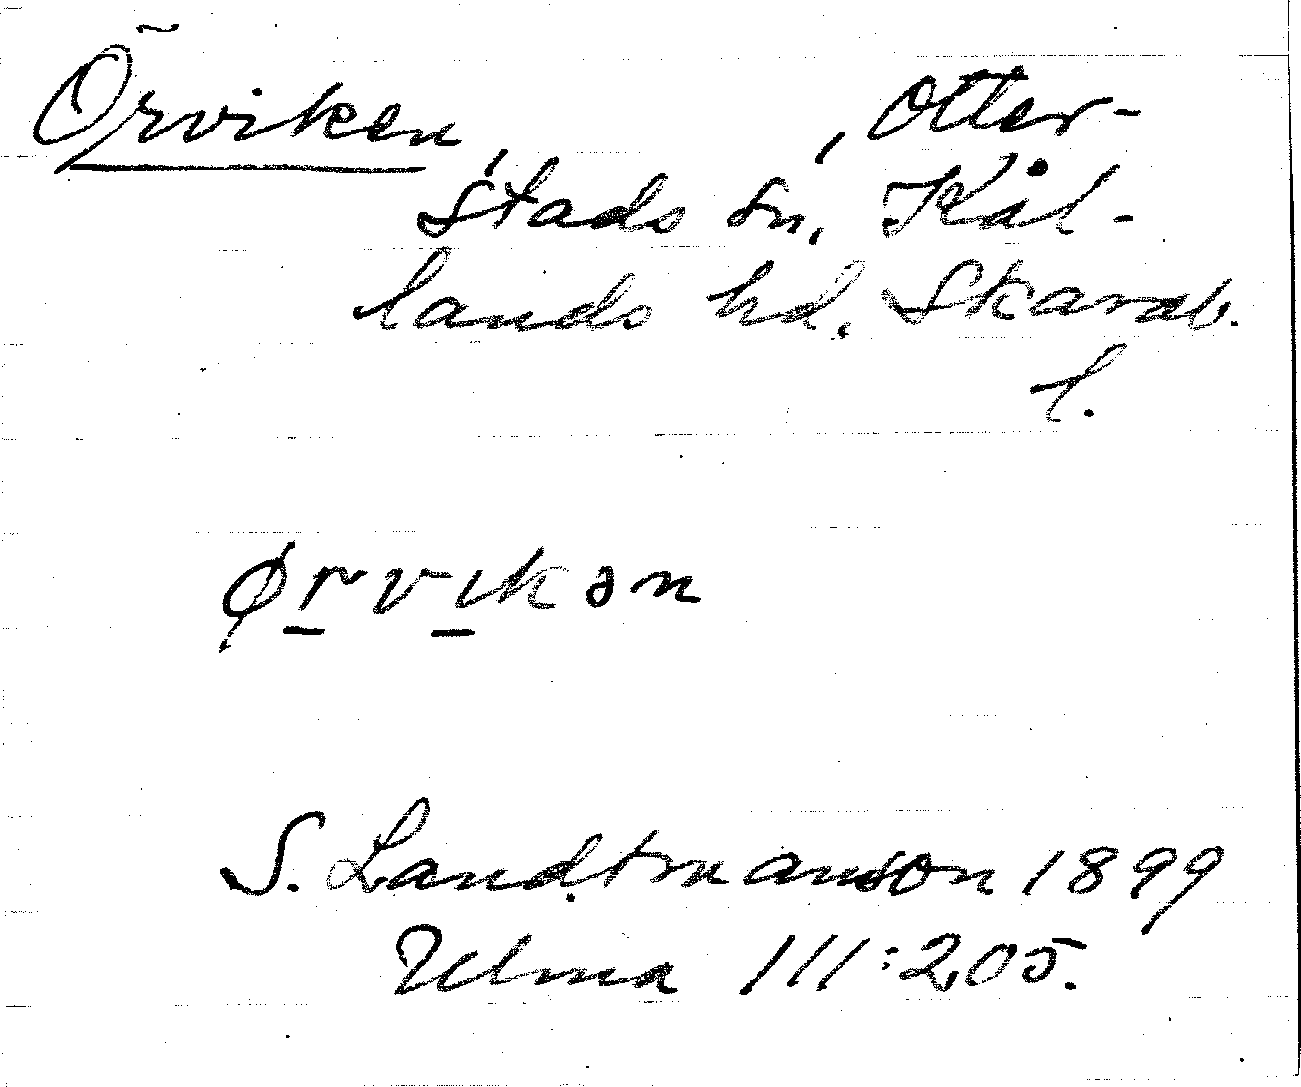 Örviken, , Otter-
stads sn, Kål-
lands hd. Skarab.
l.
Ørvikən
S. Landtmanson 1899
Ulma 111:205.